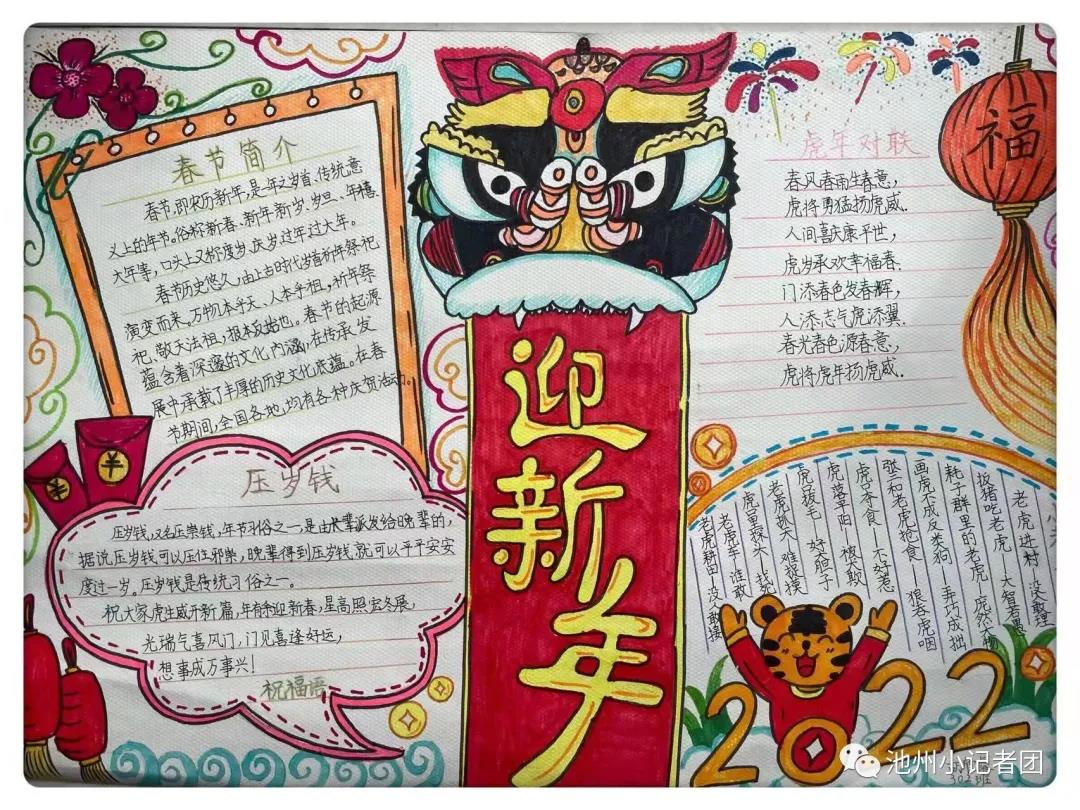 春节简介
春节,即农历新年,是一年之岁首、传统意
义上的年节。俗称新春、新年、新岁、岁旦、年禧、
大年等,口头上又称度岁、庆岁、过年、过大年。
春节历史悠久,由上古时代岁首祈年祭祀
演变而来。万物本乎天、人本乎祖,祈年祭
祀、敬天法祖,报本反始也。春节的起源
蕴含着深邃的文化内涵,在传承发
展中承载了丰厚的历史文化底蕴。在春
节期间,全国各地,均有各种庆贺活动。
压岁钱
压岁钱,又名压祟钱,年节习俗之一,是由长辈派发给晚辈的,
据说压岁钱可以压住邪祟,晚辈得到压岁钱就可以平平安安
度过一岁。压岁钱是传统习俗之一。
祝大家虎生威开新篇,年有余迎新春,星高照宏冬展,
光瑞气喜风门,门见喜逢好运,
想事成万事兴!
祝福语
迎新年
虎年对联
春风春雨生春意,
虎将勇猛扬虎威.
人间喜庆康平世,
虎岁承欢幸福春.
门添春色发春辉,
人添志气虎添翼.
春光春色源春意,
虎将虎年扬虎威.
福
老虎进村 没敢理
扳猪吃老虎——大智若愚
耗子群里的老虎 庞然
画虎不成反类狗 弄巧成拙
张三和老虎抢食 狠吞虎咽
虎口夺食 不好惹
虎落平阳——被犬欺
虎口拔毛 好大胆子
老虎抓天 难捉摸
虎里探头 找死
老虎车 谁敢
老虎耕田——没人敢接
2022
302班
池州小记者团